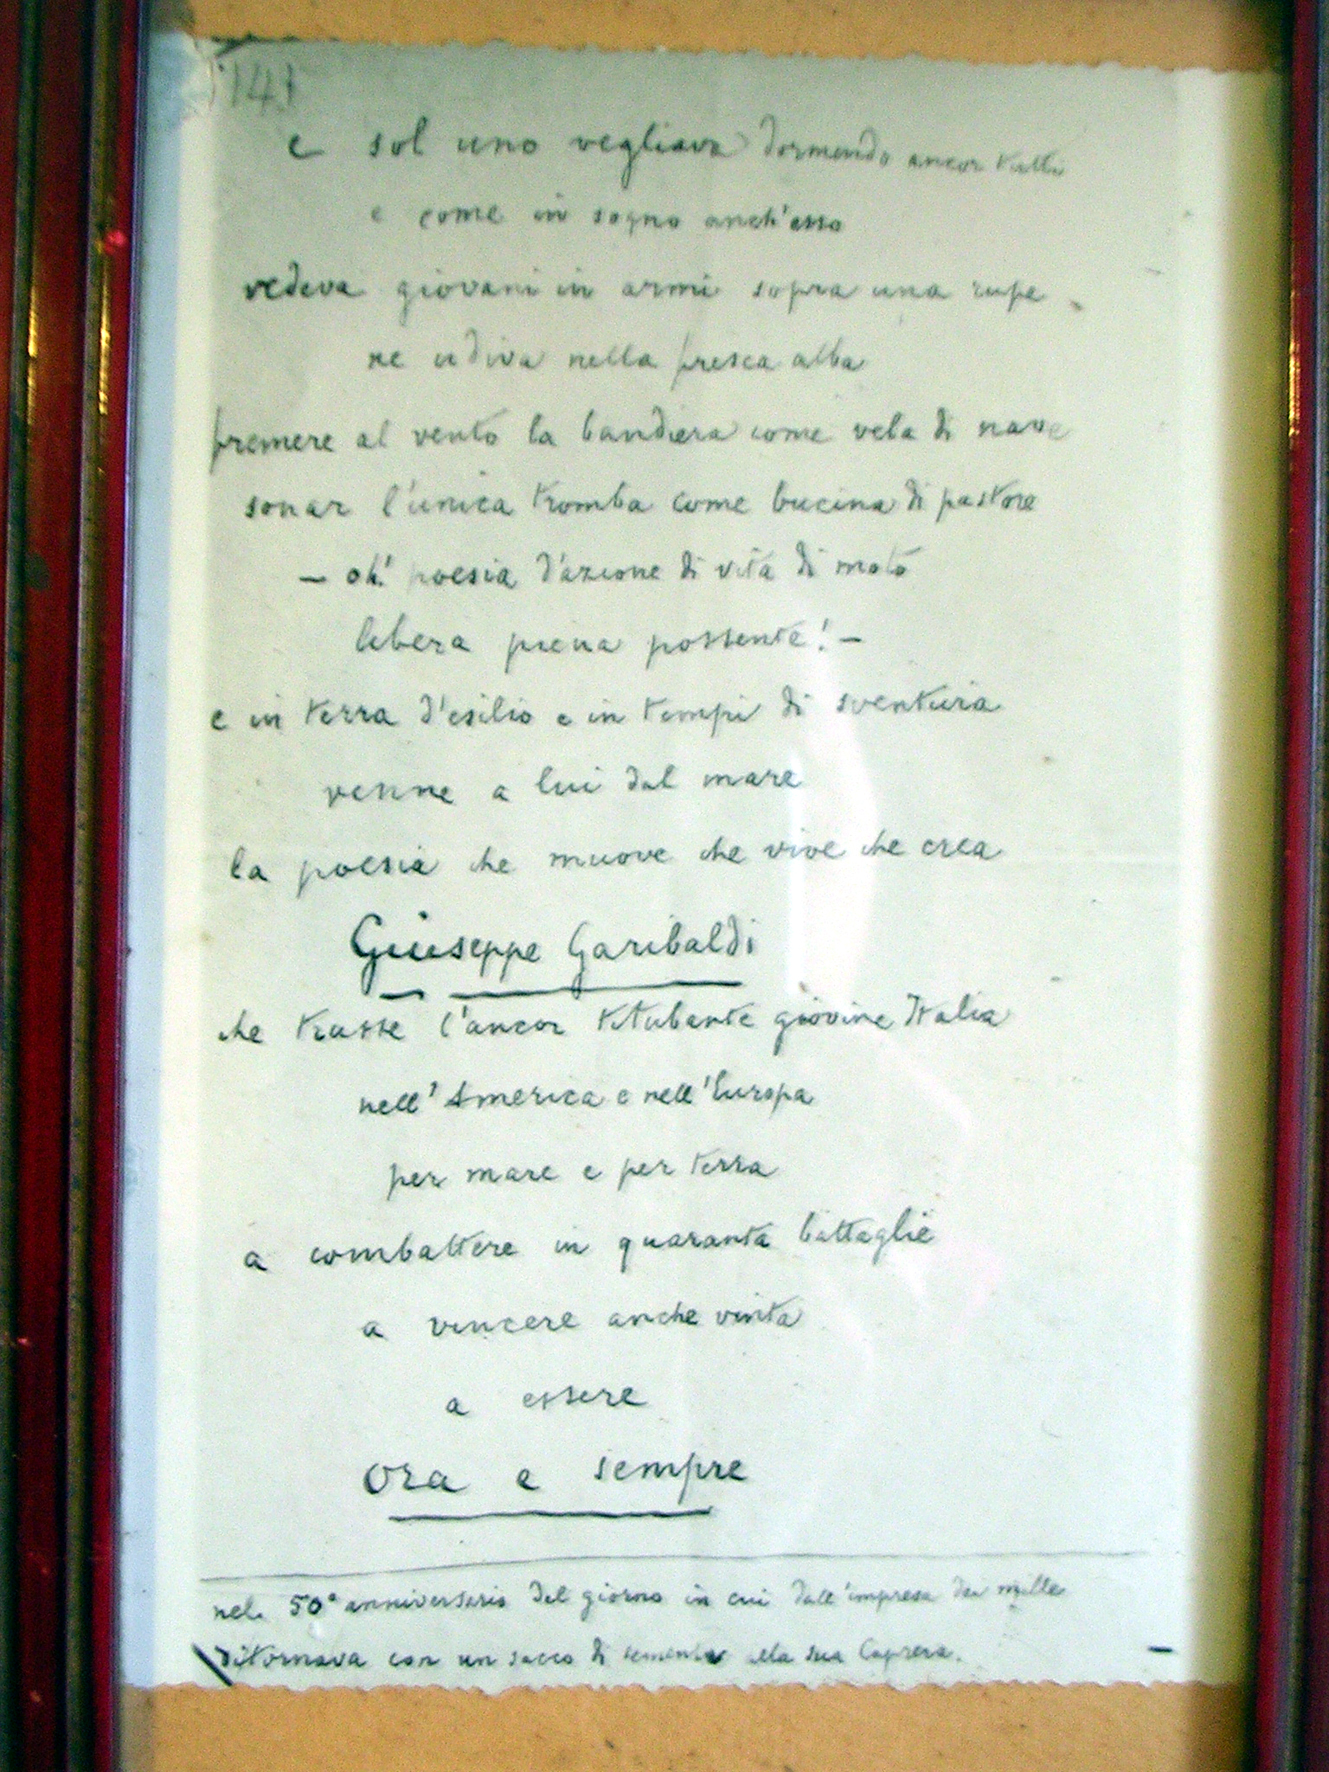 141
e sol uno vegliava dormendo ancor tutti
e come in sogno anch'esso
vedeva giovani in armi sopra una rupe
ne udiva nella fresca alba
fremere al vento la bandiera come vela di nave
sonar l'unica tromba come bucina di pastore
– oh! poesia d'azione di vita di moto
libera piena possente! –
e in terra d'esilio e in tempi di sventura
venne a lui dal mare
la poesia che muove che vive che crea
Giuseppe Garibaldi
che trasse l'ancor titubante giovine Italia
nell'America e nell'Europa
per mare e per terra
a combattere in quaranta battaglie
a vincere anche vinta
a essere
Ora e sempre
nel 50° anniversario del giorno in cui dall'impresa dei mille
ritornava con un sacco di sementi alla sua Caprera.